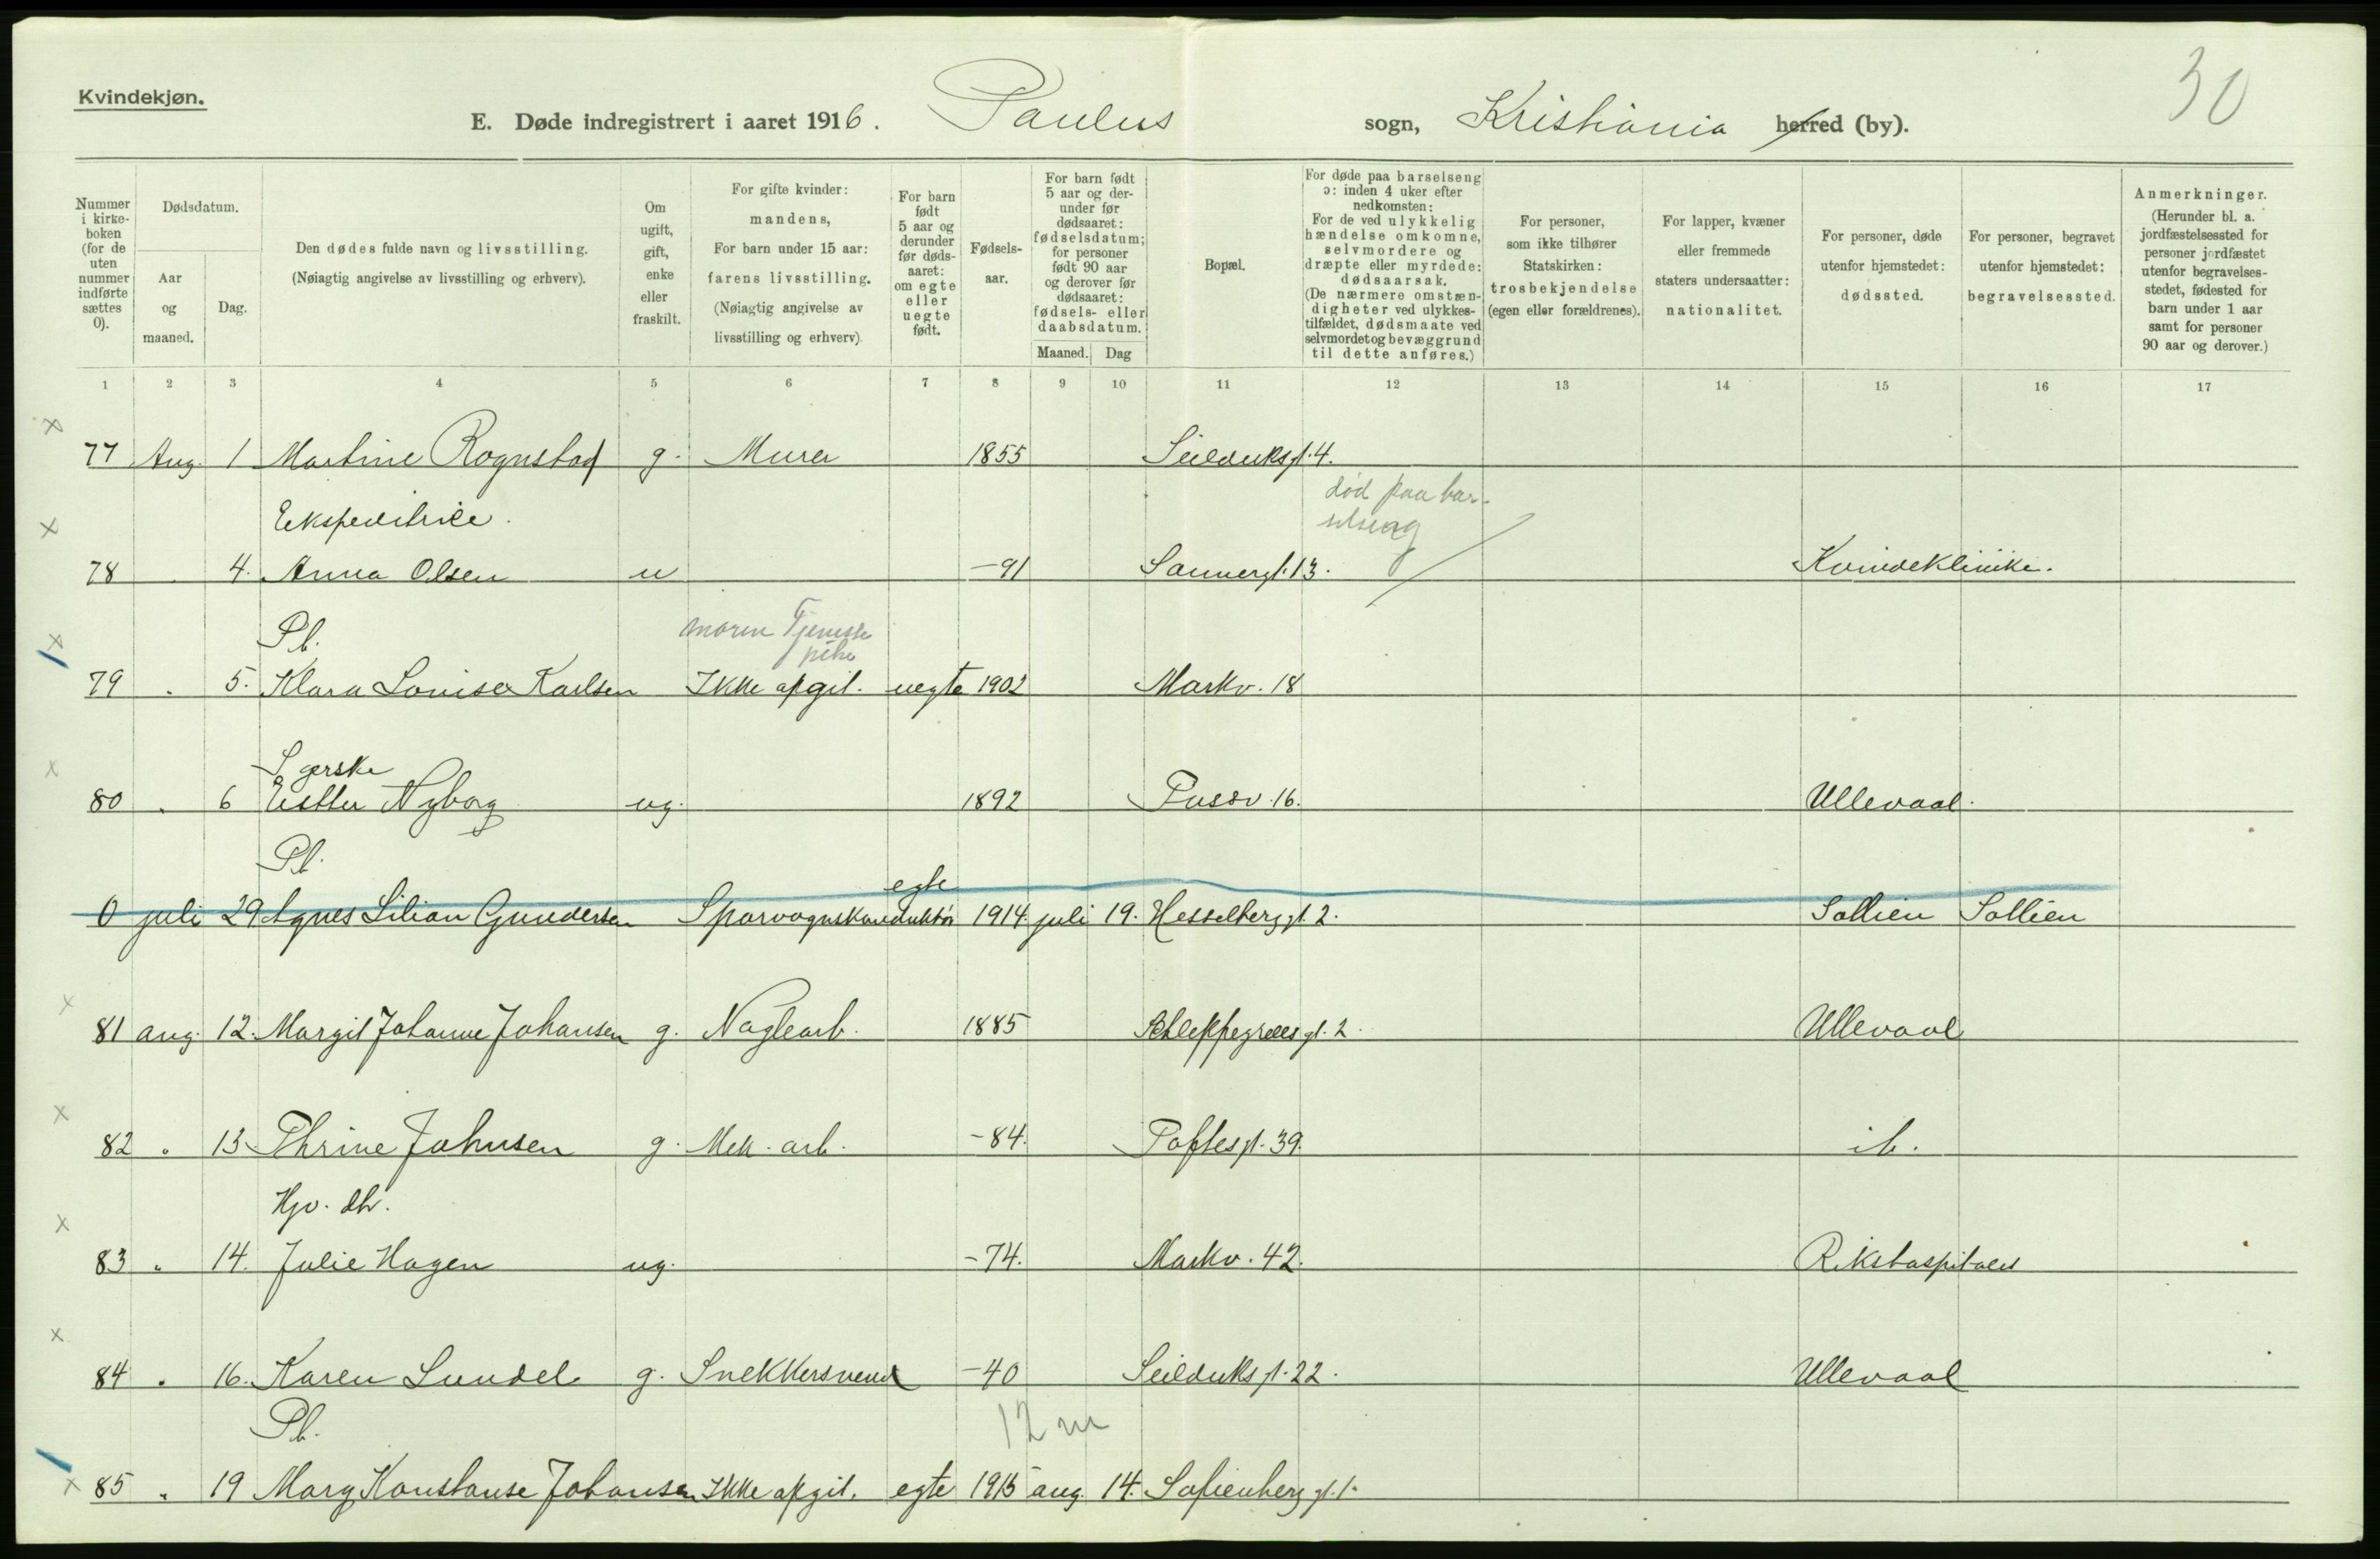 Kvindekjøn.
30
E. Døde indregistrert i aaret 1916. Paulus sogn, Kristiania herred (by).
Nummer i kirkeboken (for de uten nummer indførte sættes 0).
Dødsdatum.
Aar og maaned.
Dag.
Den dødes fulde navn og livsstilling.
(Nøiagtig angivelse av livsstilling og erhverv).
Om ugift, gift, enke eller fraskilt.
For gifte kvinder: mandens,
For barn under 15 aar: farens livsstilling.
(Nøiagtig angivelse av livsstilling og erhverv).
For barn født 5 aar og derunder før dødsaaret: om egte eller uegte født.
Fødselsaar.
For barn født 5 aar og derunder før dødsaaret: fødselsdatum; for personer født 90 aar og derover før dødsaaret: fødsels- eller daabsdatum.
Maaned. Dag
Bopæl.
For døde paa barselseng ɔ: inden 4 uker efter nedkomsten:
For de ved ulykkelig hændelse omkomne, selvmordere og dræpte eller myrdede: dødsaarsak.
(De nærmere omstændigheter ved ulykkestilfældet, dødsmaate ved selvmordet og bevæggrund til dette anføres.)
For personer, som ikke tilhører Statskirken: trosbekjendelse (egen eller forældrenes).
For lapper, kvæner eller fremmede staters undersaatter: nationalitet.
For personer, døde utenfor hjemstedet: dødssted.
For personer, begravet utenfor hjemstedet: begravelsessted.
Anmerkninger.
(Herunder bl. a. jordfæstelsessted for personer jordfæstet utenfor begravelsesstedet, fødested for barn under 1 aar samt for personer 90 aar og derover.)
1 2 3 4 5 6 7 8 9 10 11 12 13 14 15 16 17
77 Aug. 1 Martine Rognstad g. Murer 1855 Seilduksgt. 4.
Ekspeditrice. død paa barselseng
78 4. Anna Olsen u -91 Sannergt. 13. Kvindeklinike.
Pb. moren Tjenestepike
79 " 5. Klara Louise Karlsen Ikke opgit. uegte 1902 Markv. 18
Syerske
80 " 6 Esther Nyborg ug. 1892 Fossv. 16. Ullevaal.
Pb. egte
0 juli 29. Agnes Lilian Gundersen Sporvognskonduktör 1914 juli 19. Hesselberggt. 2. Sollien Sollien
81 aug. 12. Margit Johanne Johansen g. Naglearb. 1885 Schleppegrellsgt. 2. Ullevaal
82 " 13 Thrine Johnsen g. Mek. arb. -84. Toftesgt. 39. ib.
Hjv. dtr.
83 " 14. Julie Hagen ug. -74. Markv. 42. Rikshospitalet
84 " 16. Karen Lundel g. Snekkersvend -40 Seilduksgt. 22. Ullevaal
Pb. 12 m
85 " 19 Marg Konstanse Johansen Ikke opgit. egte 1915 aug. 14. Sofienberggt. 1.